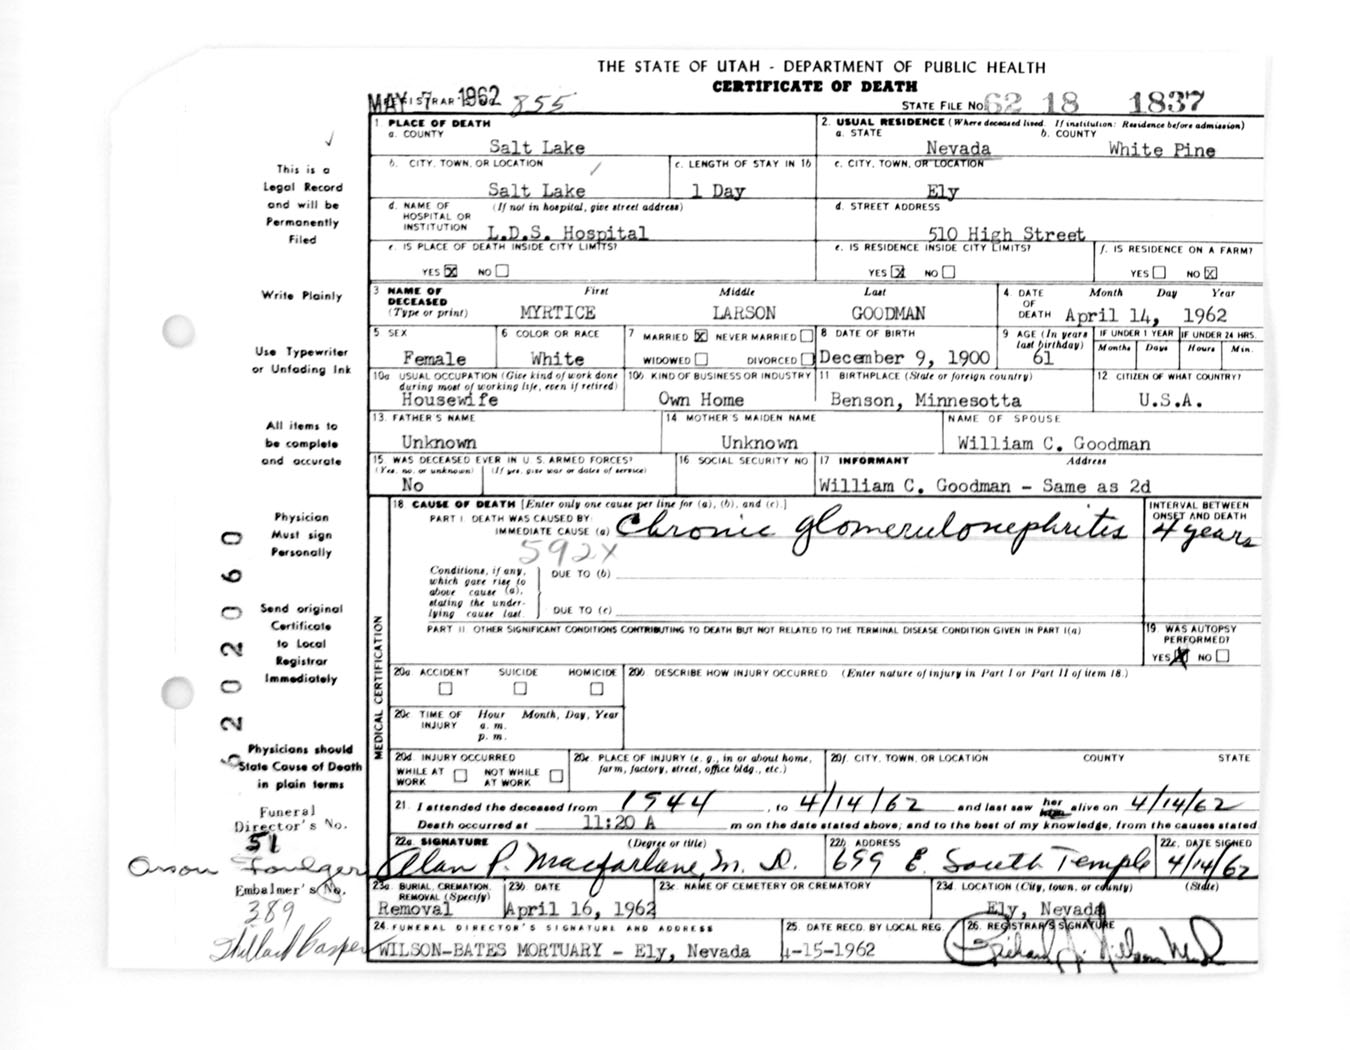 THE STATE OF UTAH - DEPARTMENT OF PUBLIC HEALTH
CERTIFICATE OF DEATH
MAY 7 1962 REGISTRAR'S NO. 855
STATE FILE NO. 62 18 1837
This is a
Legal Record
and will be
Permanently
Filed
Write Plainly
Use Typewriter
or Unfading Ink
All items to
be complete
and accurate
Physician
Must sign
Personally
Send original
Certificate
to Local
Registrar
Immediately
Physicians should
State Cause of Death
in plain terms
Funeral
Director's No.
51
Orson Foulger
Embalmer's No.
389
1 PLACE OF DEATH
a. COUNTY
Salt Lake
2. USUAL RESIDENCE (Where deceased lived. If institution: Residence before admission)
a. STATE b. COUNTY
Nevada White Pine
b. CITY, TOWN, OR LOCATION c. LENGTH OF STAY IN 1b c. CITY, TOWN, OR LOCATION
Salt Lake 1 Day Ely
d. NAME OF HOSPITAL OR INSTITUTION (If not in hospital, give street address) d. STREET ADDRESS
L.D.S. Hospital 510 High Street
e. IS PLACE OF DEATH INSIDE CITY LIMITS? e. IS RESIDENCE INSIDE CITY LIMITS? f. IS RESIDENCE ON A FARM?
YES X NO YES X NO YES NO X
3 NAME OF DECEASED (Type or print) First Middle Last 4 DATE OF DEATH Month Day Year
MYRTICE LARSON GOODMAN April 14, 1962
5 SEX 6 COLOR OR RACE 7 MARRIED X NEVER MARRIED 8 DATE OF BIRTH 9 AGE (In years last birthday) IF UNDER 1 YEAR IF UNDER 24 HRS.
Months Days Hours Min.
Female White WIDOWED DIVORCED December 9, 1900 61
10a USUAL OCCUPATION (Give kind of work done during most of working life, even if retired) 10b KIND OF BUSINESS OR INDUSTRY 11 BIRTHPLACE (State or foreign country) 12 CITIZEN OF WHAT COUNTRY?
Housewife Own Home Benson, Minnesotta U.S.A.
13. FATHER'S NAME 14 MOTHER'S MAIDEN NAME NAME OF SPOUSE
Unknown Unknown William C. Goodman
15 WAS DECEASED EVER IN U S. ARMED FORCES? 16 SOCIAL SECURITY NO 17 INFORMANT Address
(Yes, no, or unknown) (If yes, give war or dates of service)
No William C. Goodman - Same as 2d
MEDICAL CERTIFICATION
18 CAUSE OF DEATH [Enter only one cause per line for (a), (b), and (c).] INTERVAL BETWEEN ONSET AND DEATH
PART I. DEATH WAS CAUSED BY:
IMMEDIATE CAUSE (a) Chronic glomerulonephritis 4 years
592X
Conditions, if any, which gave rise to above cause (a), stating the under-lying cause last.
DUE TO (b)
DUE TO (c)
PART II. OTHER SIGNIFICANT CONDITIONS CONTRIBUTING TO DEATH BUT NOT RELATED TO THE TERMINAL DISEASE CONDITION GIVEN IN PART I(a)
19. WAS AUTOPSY PERFORMED?
YES X NO
20a. ACCIDENT SUICIDE HOMICIDE 20b DESCRIBE HOW INJURY OCCURRED (Enter nature of injury in Part I or Part II of item 18.)
20c TIME OF INJURY Hour Month, Day, Year
a. m.
p. m.
20d. INJURY OCCURRED 20e. PLACE OF INJURY (e. g., in or about home, farm, factory, street, office bldg., etc.) 20f. CITY, TOWN, OR LOCATION COUNTY STATE
WHILE AT WORK NOT WHILE AT WORK
21. I attended the deceased from 1944, to 4/14/62 and last saw her him alive on 4/14/62
Death occurred at 11:20 A m on the date stated above; and to the best of my knowledge, from the causes stated
22a. SIGNATURE (Degree or title) 22b ADDRESS 22c. DATE SIGNED
Alan P. Macfarlane, M. D. 699 E. South Temple 4/14/62
23a. BURIAL, CREMATION, REMOVAL (Specify) 23b. DATE 23c. NAME OF CEMETERY OR CREMATORY 23d. LOCATION (City, town, or county) (State)
Removal April 16, 1962 Ely, Nevada
24. FUNERAL DIRECTOR'S SIGNATURE AND ADDRESS 25. DATE RECD. BY LOCAL REG. 26. REGISTRAR'S SIGNATURE
WILSON-BATES MORTUARY - Ely, Nevada 4-15-1962